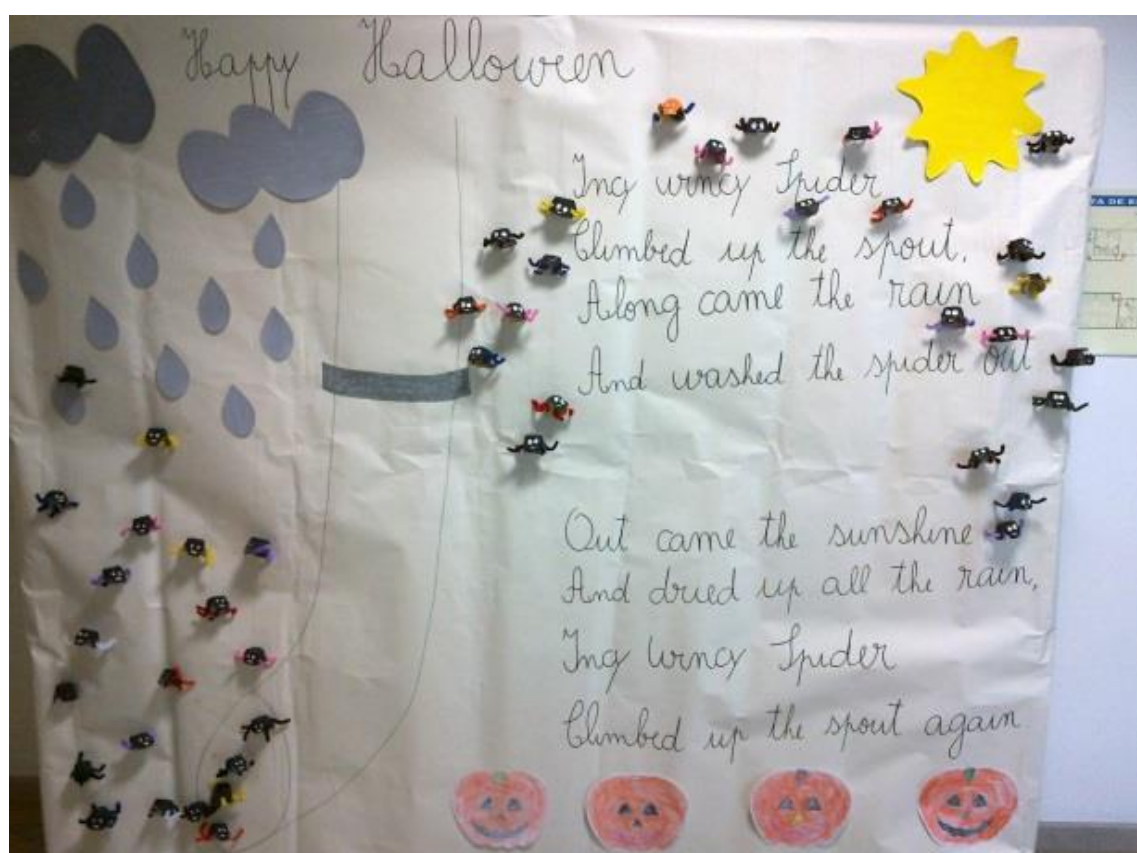 Happy Halloween
Incy wincy Spider
Climbed up the spout.
Along came the rain
And washed the spider out
Out came the sunshine
And dried up all the rain,
Incy Wincy Spider
Climbed up the spout again